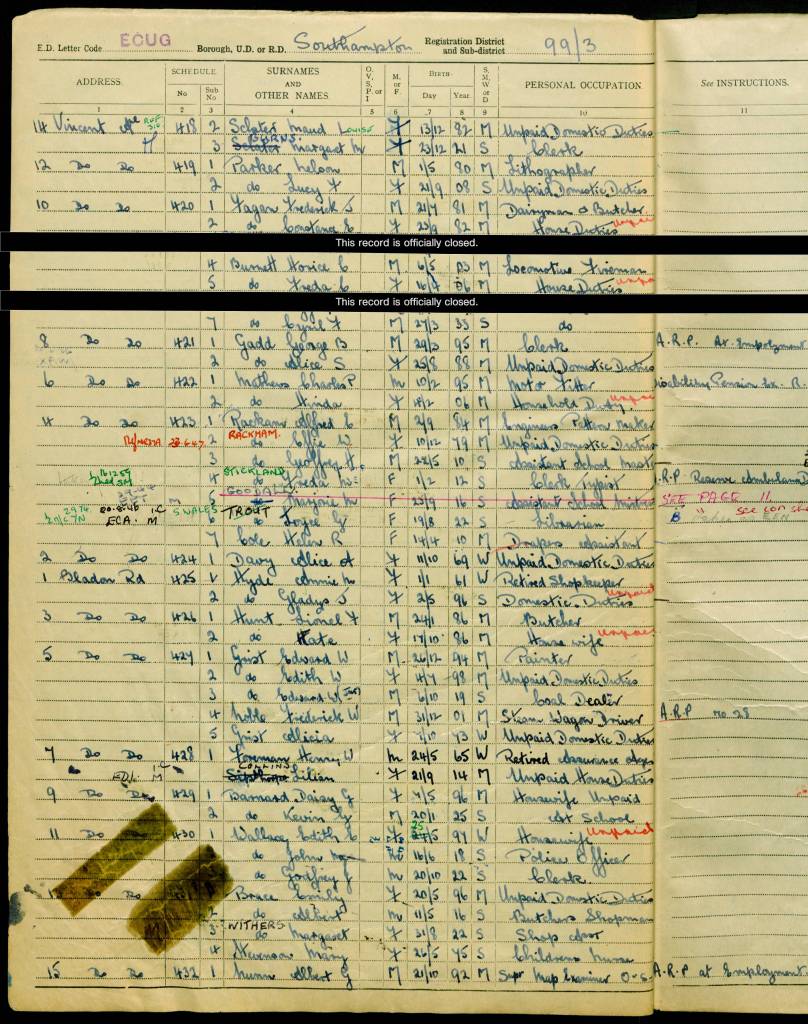 E.D. Letter Code ECUG Borough, U.D. or R.D. Southampton Registration District and Sub-district 99/3
ADDRESS. SCHEDULE SURNAMES AND OTHER NAMES O. V. S. P. or I M. or F. BIRTH- S. M. W or D PERSONAL OCCUPATION See INSTRUCTIONS.
No Sub No Day Year
1 2 3 4 5 6 7 8 9 10 11
14 Vincent 418 2 Sclater Maud Louise F 13/12 82 M Unpaid Domestic Duties
BURNS.
3 Sclater Margaret M F 23/12 21 S Clerk
12 Do Do 419 1 Parker Nelson M 1/5 80 M Lithographer
2 do Lucy F F 21/9 08 S Unpaid Domestic Duties
10 Do Do 420 1 Fagan Frederick J M 21/7 81 M Dairyman & Butcher
2 do Constance E F 23/9 82 M House Duties
This record is officially closed.
4 Burnett Horice C M 6/5 03 M Locomotive Fireman
5 do Freda C F 16/7 06 M House Duties
This record is officially closed.
7 do Cyril F M 27/3 33 S do
8 Do Do 421 1 Gadd George B M 29/3 95 M Clerk A.R.P. At Employment
2 do Alice S F 25/8 88 M Unpaid Domestic Duties
6 Do Do 422 1 Mathews Charles P. M 10/2 95 M Motor Fitter Disability Pension Ex.
2 do Hinda F 14/2 06 M Household Duty
4 Do Do 423 1 Rackam Alfred C M 2/9 84 M Engineers Pattern Maker
RACKHAM.
2 do Effie W F 10/12 79 M Unpaid Domestic Duties
3 do Geoffrey H. M 22/5 10 S Assistant School Master
STICKLAND
4 do Freda W F 1/2 12 S Clerk Typist A.R.P Reserve Ambulance
GOODALL
5 do Marjorie M F 23/9 16 S Assistant School Mistress SEE PAGE 11
20-8-45 ECA. M S WALES TROUT
6 do Joyce G F 19/8 22 S Librarian
7 Cole Helen R F 14/4 10 M Drapers Assistant
2 Do Do 424 1 Davy Alice A F 11/10 69 W Unpaid Domestic Duties
1 Bladon Rd 425 1 Hyde Annie M F 1/1 61 W Retired Shopkeeper
2 do Gladys J F 2/5 96 S Domestic Duties
3 Do Do 426 1 Hunt Lionel F M 24/1 86 M Butcher
2 do Kate F 17/10 86 M House wife
5 Do Do 427 1 Grist Edward W M 26/12 94 M Painter
2 do Edith W F 4/7 98 M Unpaid Domestic Duties
3 do Edward W Jun M 6/10 19 S Coal Dealer
4 Noble Frederick W M 31/12 01 M Steam Wagon Driver A.R.P no. 28
5 Grist Alicia F 7/10 73 W Unpaid Domestic Duties
7 Do Do 428 1 Foreman Henry W M 24/5 65 W Retired Assurance
COLLINS
Lilian F 21/9 14 M Unpaid House Duties
9 Do Do 429 1 Barnard Daisy G F 4/5 96 M Housewife Unpaid
2 do Kevin M 20/1 25 S At School
11 Do Do 430 1 Wallace Edith E F 97 W Housewife Unpaid
do John M 16/6 18 S Police Officer
do Godfrey J M 20/10 22 S Clerk
Brace Emily F 20/5 96 M Unpaid Domestic Duties
2 do Albert M 11/5 16 S Butchers Shopman
WITHERS
3 do Margaret F 31/8 22 S Shop Asst
4 Stevenson Mary F 26/5 75 S Childrens Nurse
15 Do Do 432 1 Nunn Albert G M 21/10 92 M Supr Map Examiner O-S A.R.P at Employment